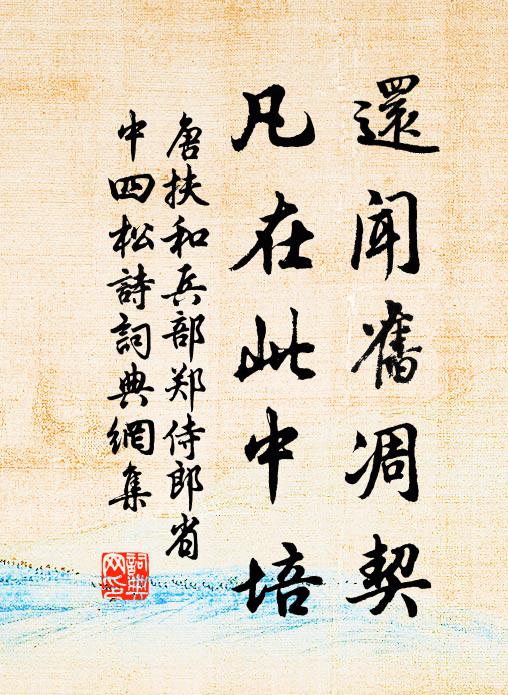 還聞舊凋契
凡在此中培
唐扶和兵部郑侍郎省
中四松詩詞典網集